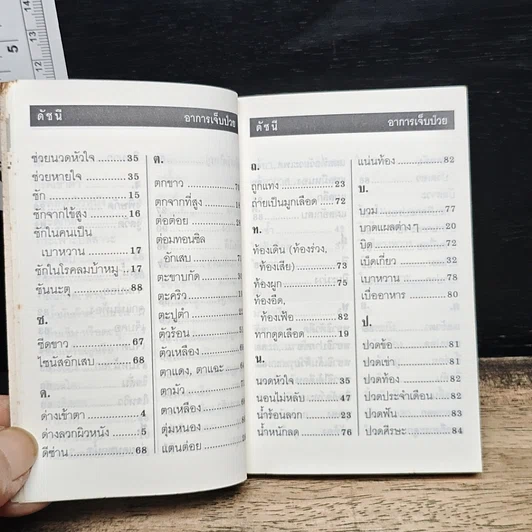 ดัชนี อาการเจ็บป่วย
ช่วยนวดหัวใจ ........... 35
ช่วยหายใจ ............... 35
ชัก .......................... 15
ชักจากไข้สูง ............ 16
ชักในคนเป็น
เบาหวาน ............. 17
ชักในโรคลมบ้าหมู .. 17
ชันนะตุ .................... 88
ซ.
ซีดขาว ..................... 67
ไซนัสอักเสบ ............ 68
ด.
ด่างเข้าตา ................ 4
ด่างลวกผิวหนัง ........ 5
ดีซ่าน ....................... 68
ต.
ตกขาว
ตกจากที่สูง
ต่อต่อย
ต่อมทอนซิล
อักเสบ
ตะขาบกัด
ตะคริว
ตะปูตำ
ตัวร้อน
ตัวเหลือง
ตาแดง, ตาแฉะ
ตามัว
ตาเหลือง
ตุ่มหนอง
แตนต่อย
ดัชนี อาการเจ็บป่วย
ถ.
ถูกแทง ..................... 23
ถ่ายเป็นมูกเลือด ...... 72
ท.
ท้องเดิน (ท้องร่วง,
ท้องเสีย) ............. 73
ท้องผูก .................... 75
ท้องอืด,
ท้องเฟ้อ .............. 82
ทากดูดเลือด ............ 19
น.
นวดหัวใจ ................. 35
นอนไม่หลับ ............. 47
น้ำร้อนลวก ............... 23
น้ำหนักลด ................ 76
แน่นท้อง .................. 82
บ.
บวม ......................... 77
บาดแผลต่างๆ ......... 20
บิด ........................... 72
เบ็ดเกี่ยว .................. 32
เบาหวาน ................. 78
เบื่ออาหาร ............... 80
ป.
ปวดข้อ .................... 81
ปวดเข่า ................... 81
ปวดท้อง .................. 82
ปวดประจำเดือน ...... 82
ปวดฟัน .................... 83
ปวดศีรษะ ................ 84